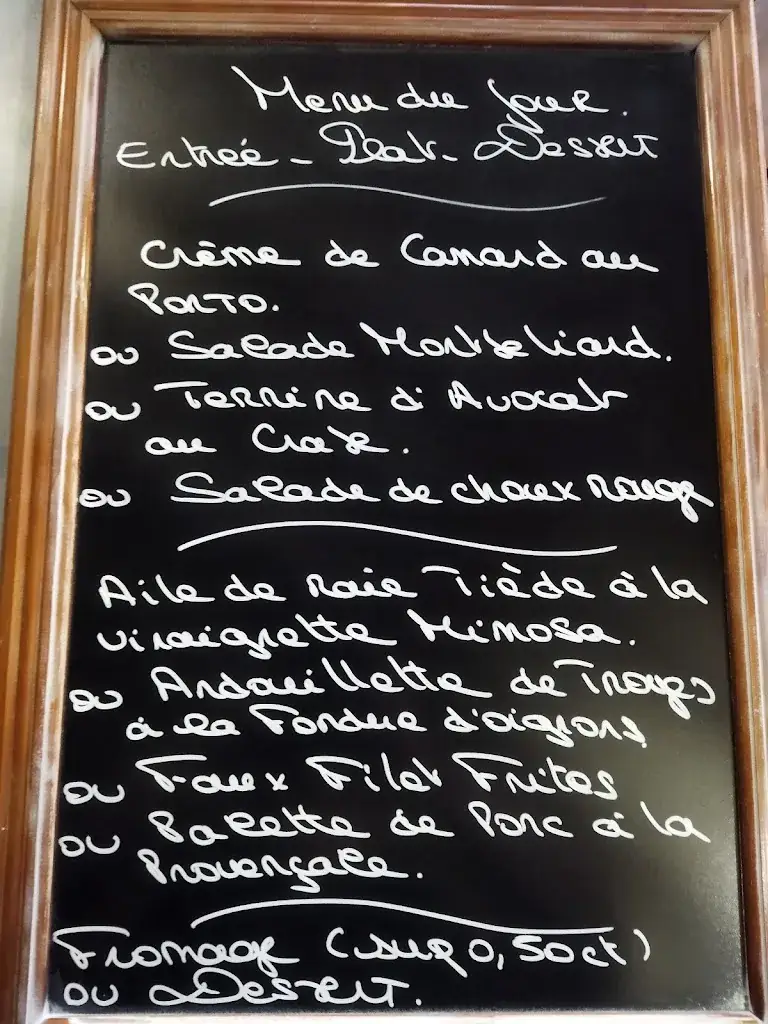 Menu du jour.
Entreé - Plat - Dessert
Crème de Canard au
PORTO.
ou Salade Montbeliard.
ou Terrine d'Avocat
au Crabe.
ou Salade de choux Rouge
Aile de Raie Tiède à la
vinaigrette Mimosa.
ou Andouillette de Troyes
à la Fondue d'oignons
ou Faux Filet Frites
ou Palette de Porc à la
Provençale.
Fromage (sup 0,50ct)
ou Dessert.